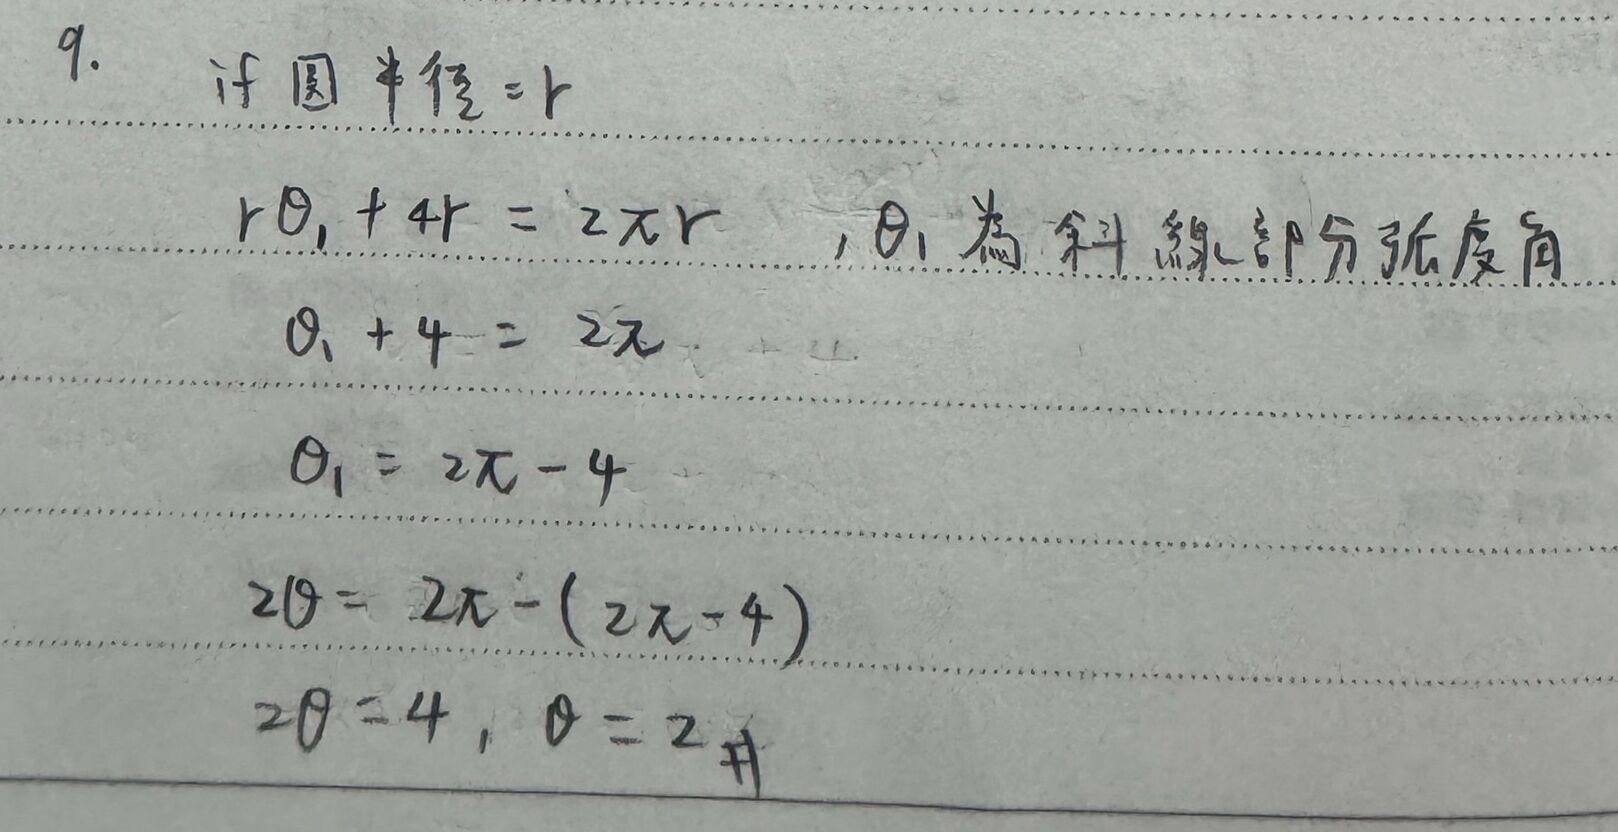 9. if 圓半徑=r
rθ₁ + 4r = 2πr ，θ₁ 為斜線部分弧度角
θ₁ + 4 = 2π
θ₁ = 2π - 4
2θ = 2π - (2π - 4)
2θ = 4, θ = 2 #